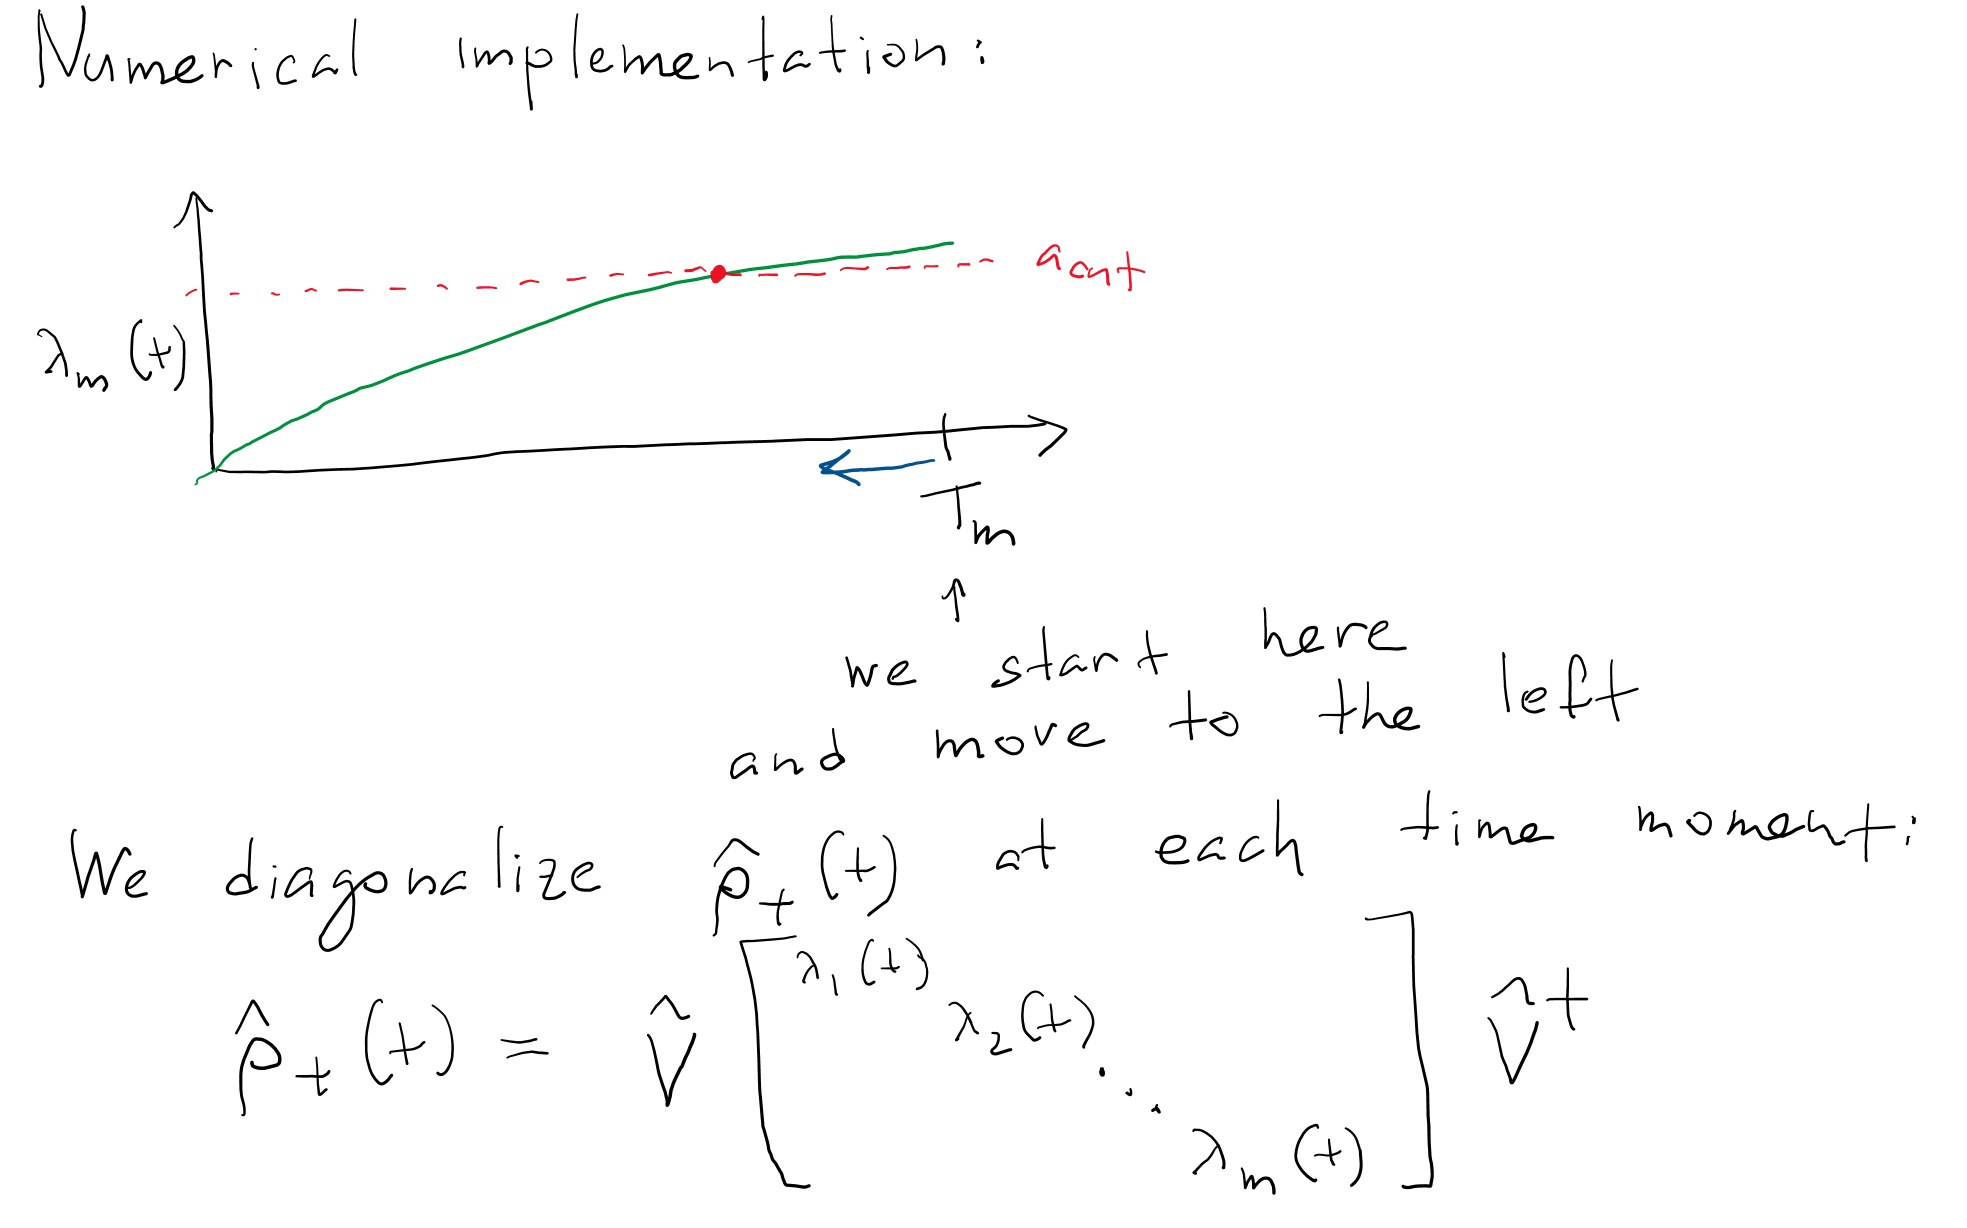 Numerical implementation:
a_cut
λ_m (t)
T_m
↑
we start here
and move to the left
We diagonalize ρ̂_+ (t) at each time moment:
ρ̂_+ (t) = V̂ [ λ_1 (t) λ_2 (t) ⋱ λ_m (t) ] V̂^†